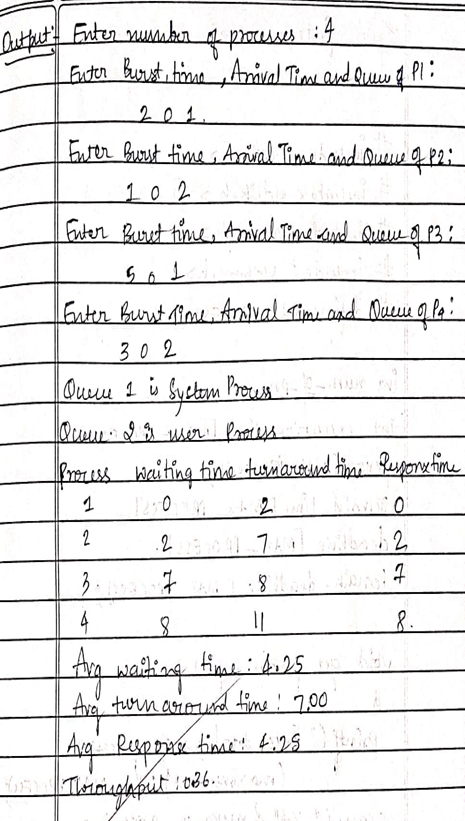 Output:- Enter number of processes : 4
Enter Burst, time, Arrival Time and Queue of P1:
2 0 1.
Enter Burst time, Arrival Time and Queue of P2:
1 0 2
Enter Burst time, Arrival Time and Queue of P3:
5 0 1
Enter Burst Time, Arrival Time and Queue of P4:
3 0 2
Queue 1 is System Process
Queue 2 is user Process
Process waiting time turnaround time Response time
1 0 2 0
2 2 7 2
3 7 8 7
4 8 11 8.
Avg waiting time : 4.25
Avg turnaround time : 7.00
Avg Response time : 4.25
Throughput : 0.36